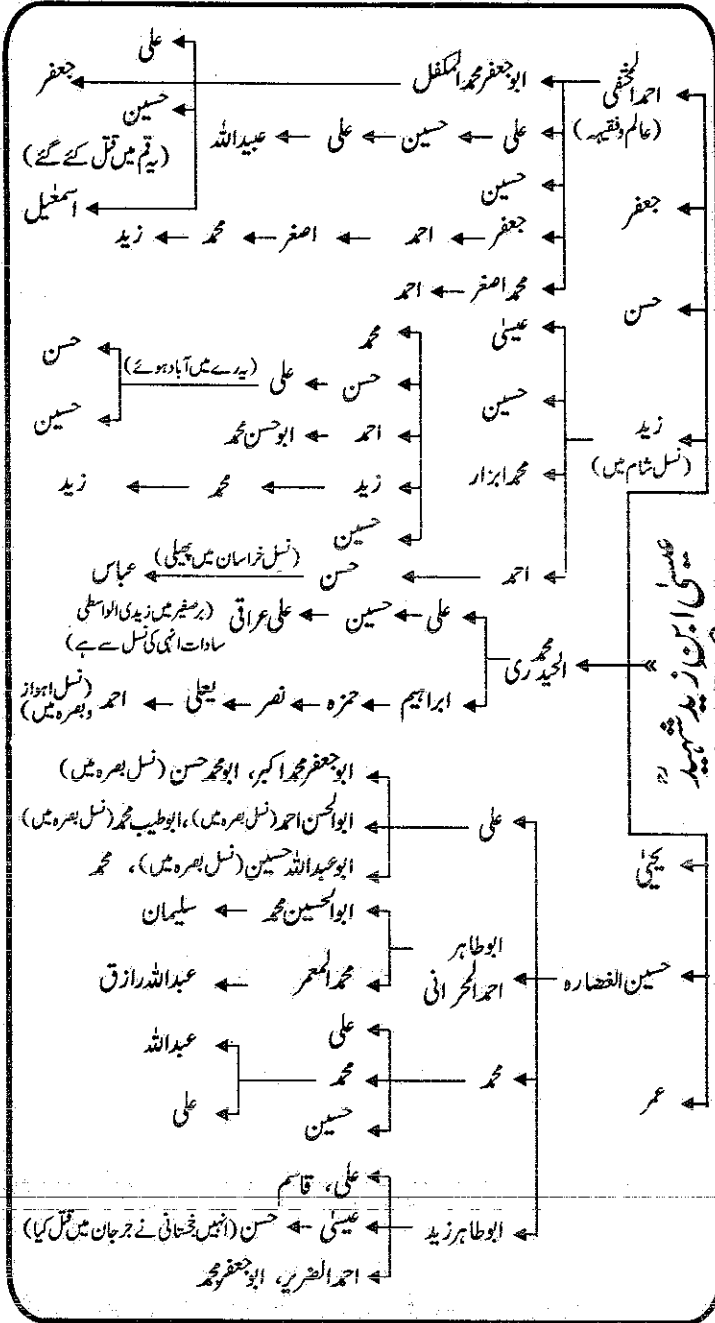 عیسیٰ ابن زید شہیدؒ
احمد المختفی
(عالم و فقیہہ)
ابو جعفر محمد المکفل
علی
جعفر
حسین
(یہ قم میں قتل کئے گئے)
اسمٰعیل
علی ← حسین ← علی ← عبیداللہ
حسین
جعفر ← احمد ← اصغر ← محمد ← زید
محمد اصغر ← احمد
جعفر
حسن
زید
(نسل شام میں)
عیسیٰ
حسین
محمد ابزار
محمد
حسن ← علی (یہ رے میں آباد ہوئے)
حسن
حسین
احمد ← ابو حسن محمد
زید ← محمد ← زید
حسین
احمد ← حسن ← عباس (نسل خراسان میں پھیلی)
محمد الحیدری
علی ← حسین ← علی عراقی (برصغیر میں زیدی الواسطی
سادات انہی کی نسل سے ہے)
ابراہیم ← حمزہ ← نصر ← یعلی ← احمد (نسل اہواز
و بصرہ میں)
یحییٰ
حسین الغضارہ
علی
ابو جعفر محمد اکبر، ابو محمد حسن (نسل بصرہ میں)
ابوالحسن احمد (نسل بصرہ میں)، ابو طیب محمد (نسل بصرہ میں)
ابو عبداللہ حسین (نسل بصرہ میں)، محمد
ابو طاہر
احمد الحرانی
ابوالحسین محمد ← سلیمان
محمد المعمر ← عبداللہ رازق
محمد
علی
محمد
عبداللہ
علی
حسین
ابو طاہر زید
علی، قاسم
عیسیٰ ← حسن (انہیں خجستانی نے جرجان میں قتل کیا)
احمد الضریر، ابو جعفر محمد
عمر